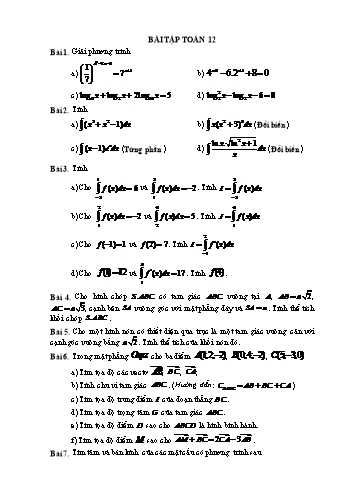 BÀI TẬP TOÁN 12
Bài 1. Giải phương trình
a) b) 4 − 6.2 + 8 = 0
c) d)
Bài 2. Tính
a) ∫(x³ + x² − 1)dx b) ∫x(x² + 3)⁴dx (Đổi biến)
c) ∫(x − 1)eˣdx (Từng phần) d) ∫ (ln x · √(ln² x + 1))/x dx (Đổi biến)
Bài 3. Tính
a) Cho ∫f(x)dx = 6 và ∫f(x)dx = −2. Tính I = ∫f(x)dx
b) Cho ∫f(x)dx = −2 và ∫f(x)dx = 5. Tính I = ∫f(x)dx
c) Cho f(−1) = 1 và f(2) = 7. Tính I = ∫f'(x)dx
d) Cho f(1) = 12 và ∫f'(x)dx = 17. Tính
Bài 4. Cho hình chóp S.ABC có tam giác ABC vuông tại A, AB = a√2,
AC = a√3, cạnh bên SA vuông góc với mặt phẳng đáy và SA = a. Tính thể tích
khối chóp S.ABC.
Bài 5. Cho một hình nón có thiết diện qua trục là một tam giác vuông cân với
cạnh góc vuông bằng a√2. Tính thể tích của khối nón đó.
Bài 6. Trong mặt phẳng Oxyz cho ba điểm
a) Tìm tọa độ các vectơ AB, BC, CA;
b) Tính chu vi tam giác ABC. (Hướng dẫn: = AB + BC + CA)
c) Tìm tọa độ trung điểm I của đoạn thẳng BC.
d) Tìm tọa độ trọng tâm G của tam giác ABC.
e) Tìm tọa độ điểm D sao cho ABCD là hình bình hành.
f) Tìm tọa độ điểm M sao cho AM + BC = 2CA − 5AB.
Bài 7. Tìm tâm và bán kính của các mặt cầu có phương trình sau